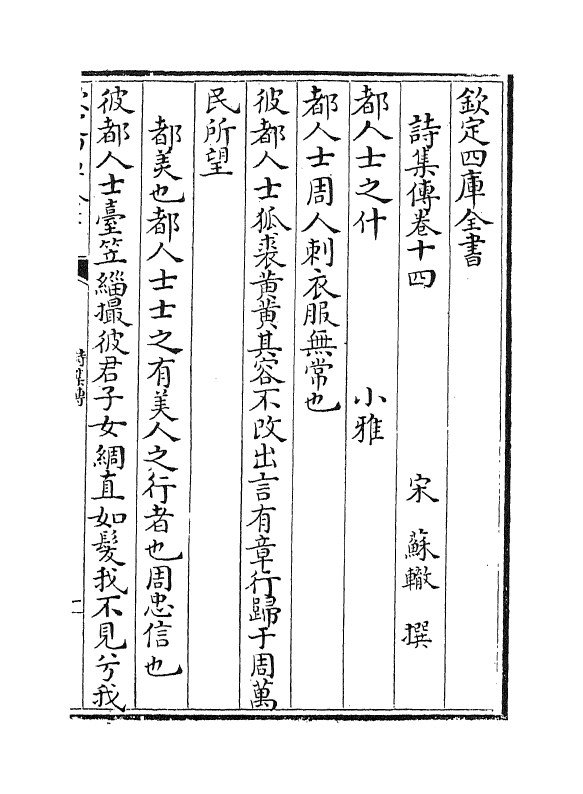 欽定四庫全書
詩集傳卷十四　宋　蘇轍　撰
都人士之什　小雅
都人士周人刺衣服無常也
彼都人士狐裘黄黄其容不改出言有章行歸于周萬
民所望
都美也都人士士之有美人之行者也周忠信也
彼都人士臺笠緇撮彼君子女綢直如髮我不見兮我
詩集傳